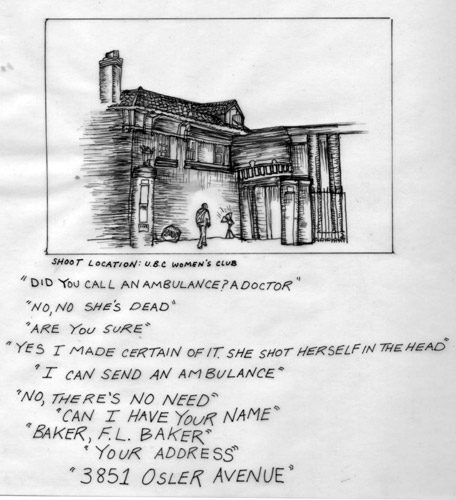 SHOOT LOCATION: U.B.C WOMEN'S CLUB
"DID YOU CALL AN AMBULANCE? A DOCTOR"
"NO, NO SHE'S DEAD"
"ARE YOU SURE"
"YES I MADE CERTAIN OF IT. SHE SHOT HERSELF IN THE HEAD"
"I CAN SEND AN AMBULANCE"
"NO, THERE'S NO NEED"
"CAN I HAVE YOUR NAME"
"BAKER, F.L. BAKER"
"YOUR ADDRESS"
"3851 OSLER AVENUE"